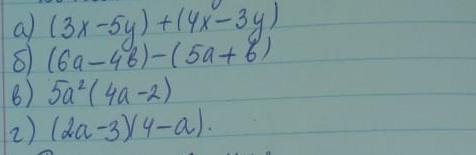 а) (3x-5y)+(4x-3y)
б) (6a-4b)-(5a+b)
в) 5a²(4a-2)
г) (2a-3)(4-a).